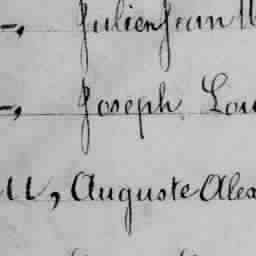 –, Julien Jean
–, Joseph Lou
u, Auguste Alex